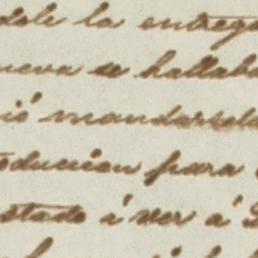 dole la entrega
nueva se hallaba
ió mandarsela
oducion para
stado á ver á